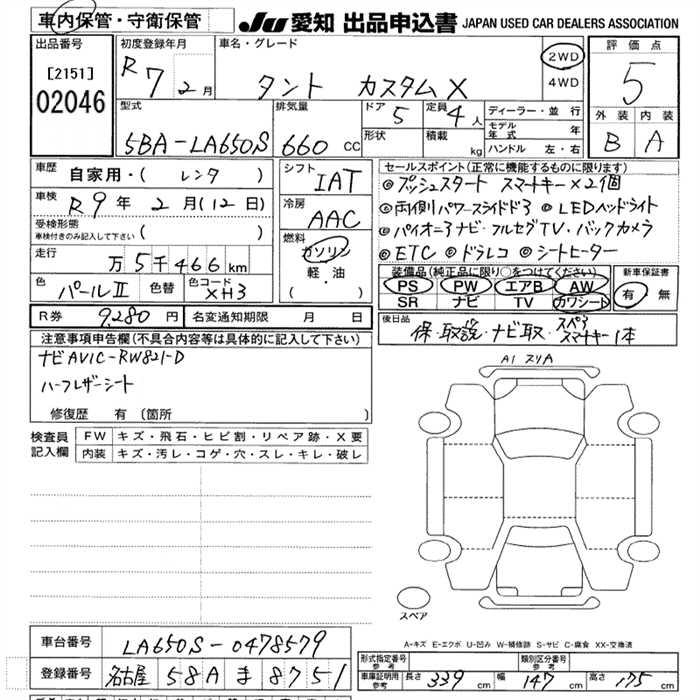 車内保管・守衛保管
JU 愛知 出品申込書 JAPAN USED CAR DEALERS ASSOCIATION
出品番号
[2151]
02046
初度登録年月
R7 2月
車名・グレード
タント カスタムX
2WD
4WD
評価点
5
外装 内装
B A
型式
5BA-LA650S
排気量
660 CC
ドア 5
定員 4人
形状
積載 kg
ディーラー・並行
モデル年式 年
ハンドル 左・右
車歴 自家用・( レンタ )
車検 R9年 2月(12日)
受検形態
車検付きのみ記入して下さい ( )
走行 万5千466km
色 パールII 色替 色コード XH3
シフト IAT
冷房 AAC
燃料
ガソリン
軽・油
( ・ )
セールスポイント(正常に機能するものに限ります)
◎プッシュスタート スマートキー×2個
◎両側パワースライドドア ◎LEDヘッドライト
◎パイオニアナビ・フルセグTV・バックカメラ
◎ETC ◎ドラレコ ◎シートヒーター
装備品(純正品に限り○をつけてください)
PS PW エアB AW
SR ナビ TV カワシート
新車保証書
有 無
R券 9,280円 名変通知期限 月 日
後日品
保・取説・ナビ取・スペアスマートキー1本
注意事項申告欄(不具合内容等は具体的に記入して下さい)
ナビAVIC-RW821-D
ハーフレザーシート
修復歴 有(箇所 )
検査員記入欄
FW キズ・飛石・ヒビ割・リペア跡・X要
内装 キズ・汚レ・コゲ・穴・スレ・キレ・破レ
A1 スリA
スペア
A-キズ E-エクボ U-凹み W-補修跡 S-サビ C-腐食 XX-交換済
車台番号 LA650S-0478579
登録番号 名古屋 58A ま 8751
形式指定番号 参考
類別区分番号 参考
車庫証明用 参考 長さ 339cm 幅 147cm 高さ 175cm